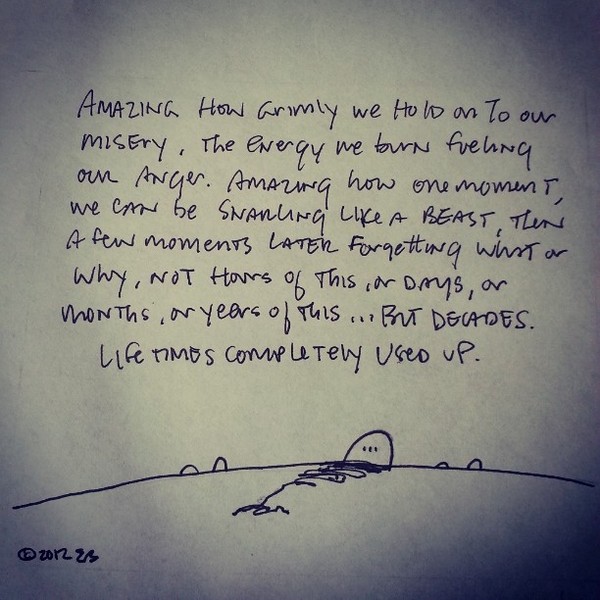 AMAZING HOW Grimly we HOLD ON TO our
MISERY, THE ENERGY WE BURN FUELING
OUR ANGER. AMAZING how one moment,
we CAN be SNARLING LIKE A BEAST, THEN
A few moments LATER forgetting WHAT or
Why, NOT Hours of THIS, or DAYS, or
MONTHS, or years of THIS ... BUT DECADES.
LIFETIMES COMPLETELY USED UP.
...
© 2012